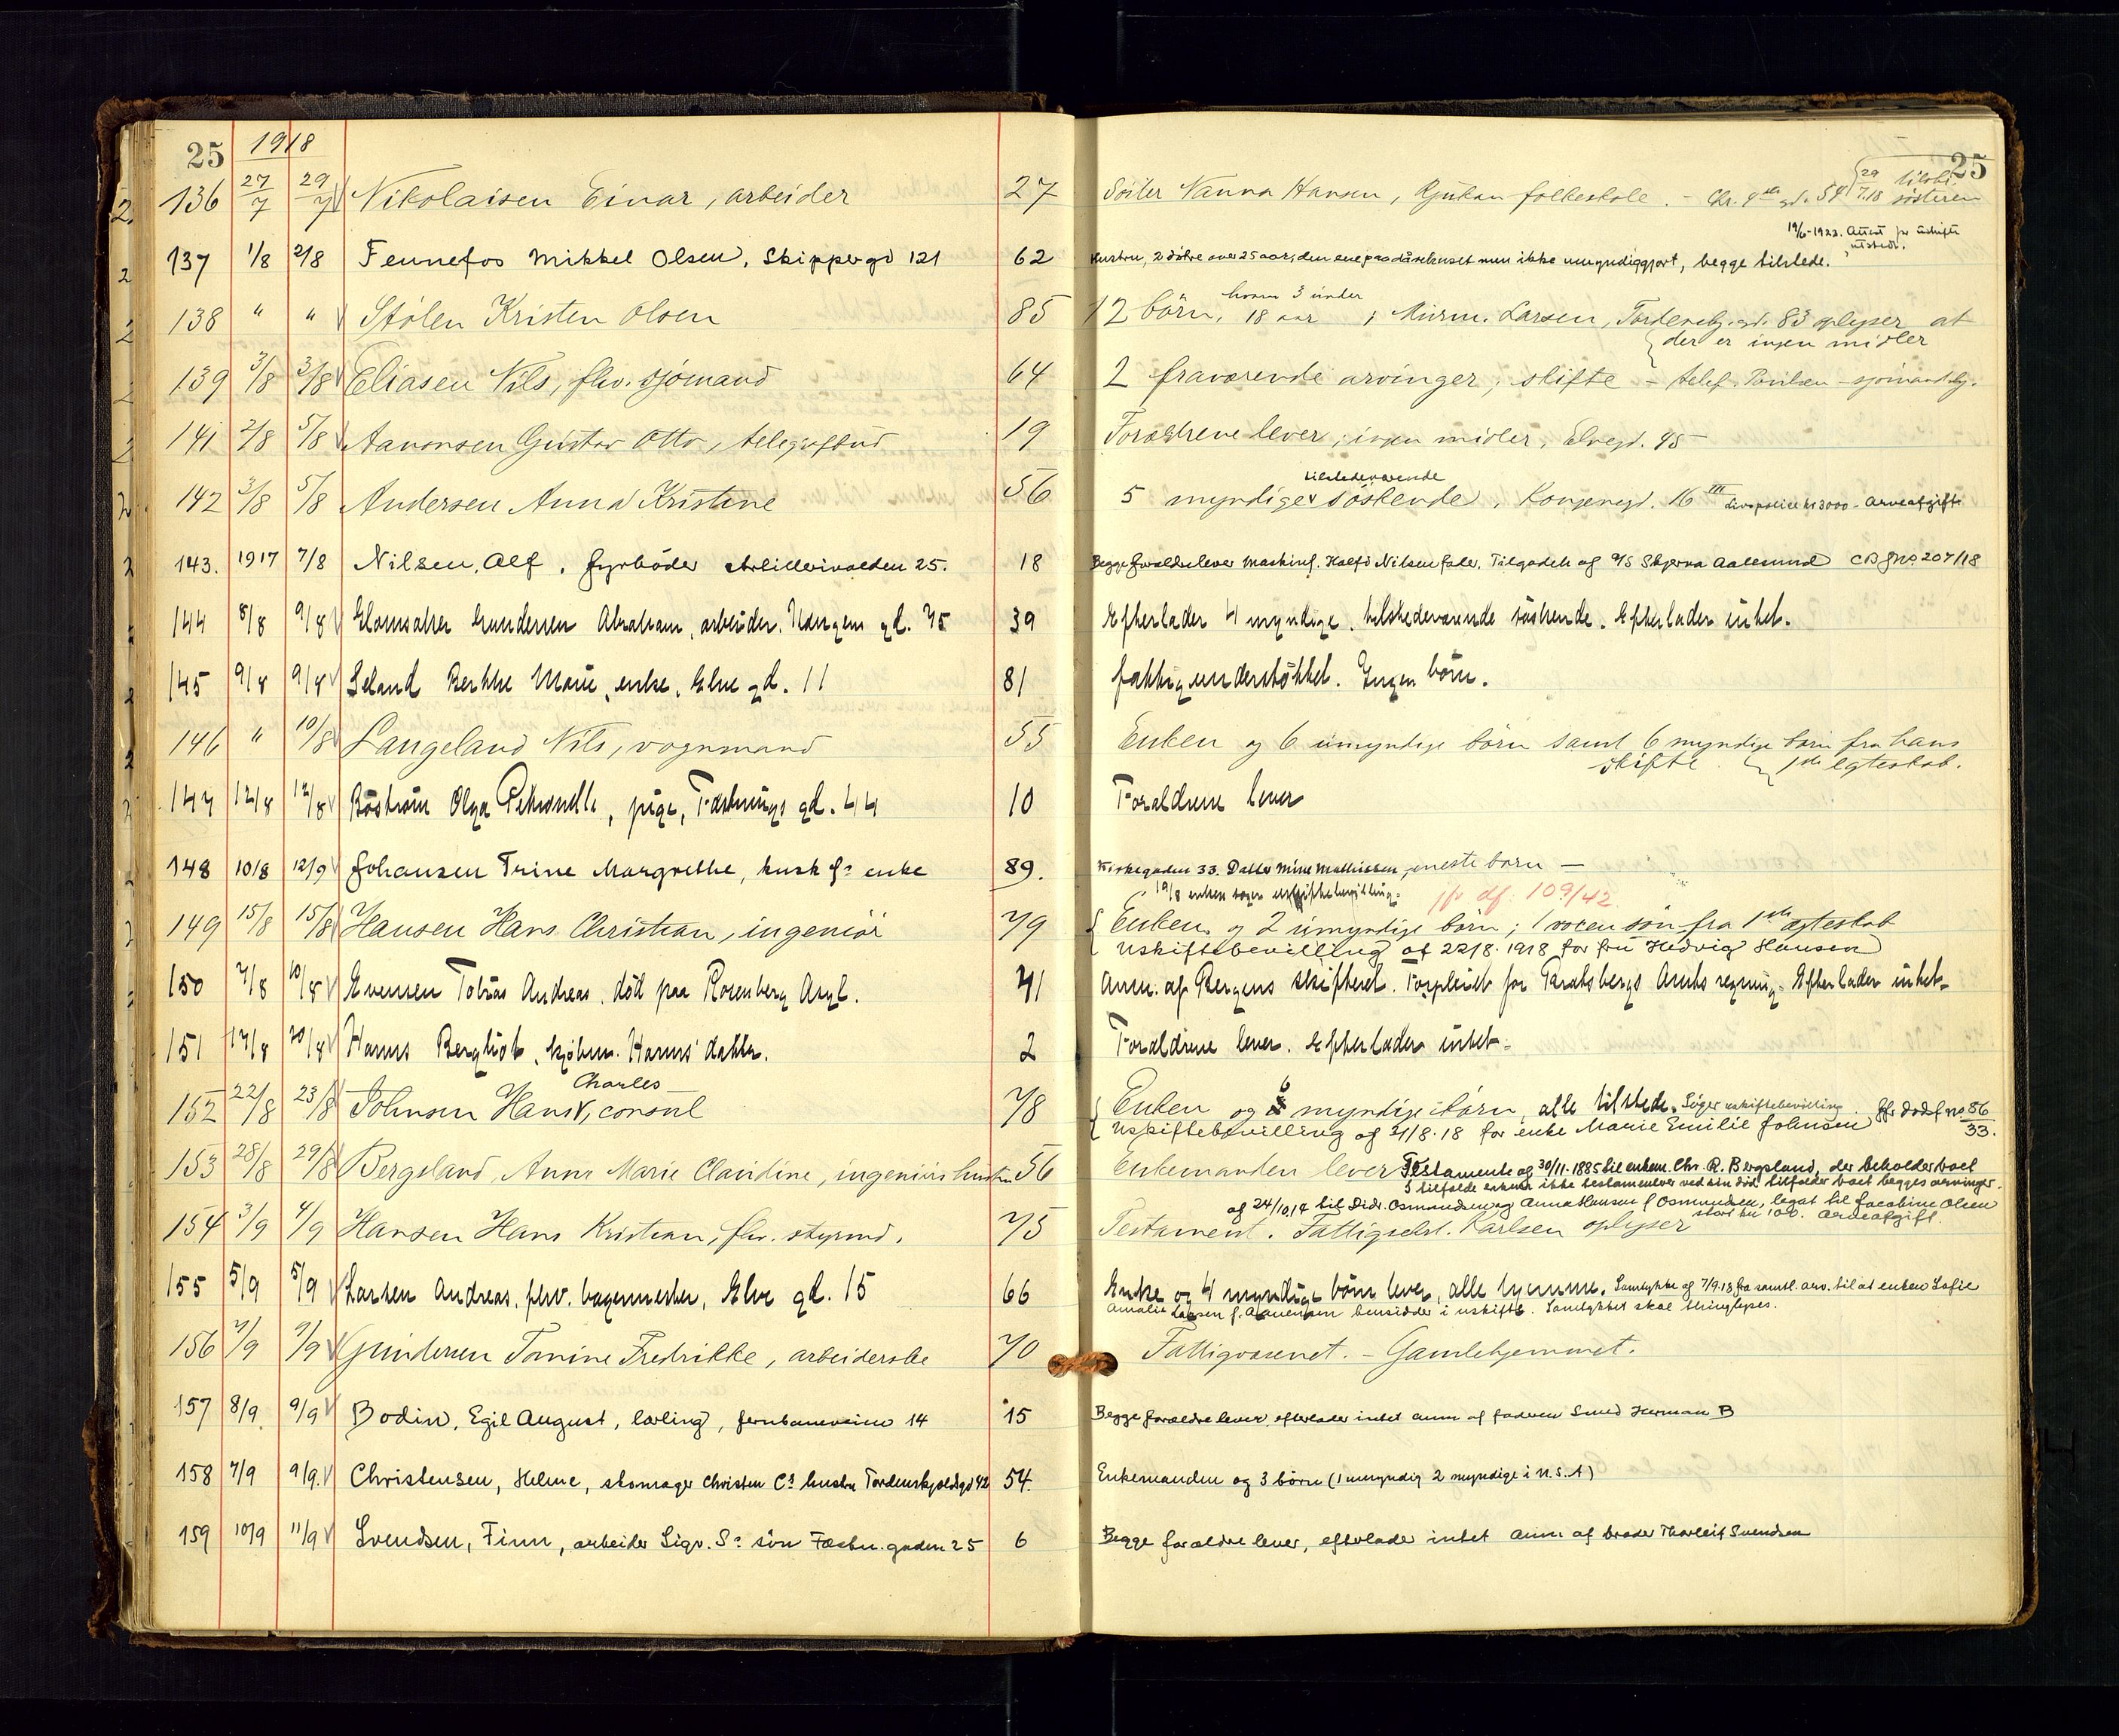 25 1918
136 27/7 29/7 Nikolaisen Einar, arbeider 27 Söster Nanna Hansen, Rjukan folkeskole. - Chr. 4de gd. 54 29/7.18 tilskr. søsteren
25
19/6-1923. Attest fr Skifte utstedt.
137 1/8 2/8 Fennefos Mikkel Olsen, Skippergd 121 62 Hustru, 2 döbre over 25 aar, den ene paa dårekuset men ikke umyndiggjort, begge tilstede.
138 " " Stölen Kristen Olsen 85 12 börn, hvoraf 3 under 18 aar, Murm. Larsen, Tordenskj.gd. 83 oplyser at
der er ingen midler
139 3/8 3/8 Eliasen Nils, fhv. sjömand 64 2 fraværende arvinger; skifte - telef. Paulsen - sjömandsby.
141 2/8 5/8 Aanonsen Gustav Otto, telegrafbud 19 Forældrene lever; ingen midler, Elvegd. 45
142 3/8 5/8 Andersen Anna Kristine 56 5 myndige tilstedeværende söskende, Kongensgd. 16 III Livspolice kr 3000 - Arveafgift.
143. 1917 7/8 Nilsen, Alf, fyrböder Artillerivolden 25. 18 Begge forældre lever Maskinf. Halfd Nilsen fader. Tilgodeh af D/S Skjerva Aalesund CB Jno 207/18
144 8/8 9/8 Glomsaker Gundersen Abraham, arbeider, Kongens gd. 75 39 Efterlader 4 myndige, tilstedeværende söskende. Efterlader intet.
145 9/8 9/8 Seland Berthe Marie, enke, Elve gd. 11 81 fattigunderstöttet. Ingen börn.
146 " 10/8 Langeland Nils, vognmand 55 Enken og 6 umyndige börn samt 6 myndige børn fra hans
skifte. 1ste egteskab.
147 12/8 12/8 Böström Olga Petronelle, pige, Fæstnings gd. 44 10 Forældrene lever
148 10/8 12/9 Johansen Trine Margrethe, kusk Js enke 89. Kirkegaden 33. Datter Mine Mathissen, eneste barn —
19/8 enken söger uskiftebevilling. jfr df. 109/42.
149 15/8 15/8 Hansen Hans Christian, ingeniör 79 Enken, og 2 umyndige börn; 1 voxen sön fra 1ste ægteskab
Uskiftebevilling af 22/8. 1918 for fru Hedvig Hansen
150 7/8 10/8 Evensen Tobias Andreas, död paa Rosenberg Asyl. 41 Anm. af Bergens skifteret. Forpleiet for Bratsbergs Amts regning. Efterlader intet.
151 17/8 20/8 Harms Bergliot, kjöbm. Harms' datter. 2 Forældrene lever. Efterlader intet.
152 22/8 23/8 Johnsen Hans Charles, consul 78 Enken og 6 myndige börn, alle tilstede. Söger uskiftebevilling. Jfr dödsf no 86/33.
Uskiftebevilling af 31/8.18 for enke Marie Emilie Johnsen
153 28/8 29/8 Bergsland, Anne Marie Claudine, ingeniörs hustru 56 Enkemanden lever Testamente af 30/11.1885 til enkem. Chr. R. Bergsland, der beholder boet
I tilfælde enkem ikke testamenterer ved sin död, tilfalder boet begges arvinger.
af 24/10.17 til Didr. Osmundsen og Anna Hansen f. Osmundsen, legat til Jacobine Olsen
stort kr 100. Arveafgift.
154 3/9 4/9 Hansen Hans Kristian, fhv. styrmd. 75 Testament. Fattigselst. Karlsen oplyser
155 5/9 5/9 Larsen Andreas, fhv. bagermester, Elve gd. 15 66 Enke og 4 myndige börn lever, alle hjemme. Samtykke af 7/9.18 fra samtl. arv. til at enken Sofie
Amalie Larsen f. Aanensen hensidder i uskifte. Samtykket skal thinglyses.
156 7/9 9/9 Gundersen Tomine Fredrikke, arbeiderske 70 Fattigvæsenet. - Gamlehjemmet.
157 8/9 9/9 Bodin, Egil August, lærling, Jernbaneveien 14 15 Begge forældre lever, efterlader intet anm af faderen Smed Herman B
158 7/9 9/9. Christensen, Helene, skomager Christen Cs hustru Tordenskjoldsgd 42 54. Enkemanden og 3 börn (1 umyndig 2 myndige i U.S.A)
159 10/9 11/9 Svendsen, Finn, arbeider Sigv. Ss sön Fæstn. gaden 25 6 Begge forældre lever, efterlader intet Anm. af broder Thorleif Svendsen